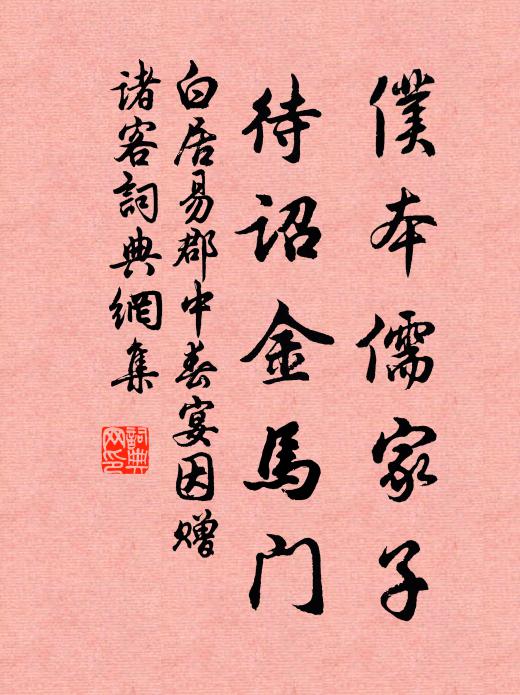 僕本儒家子
待詔金馬门
白居易郡中春宴因赠
諸客詞典網集
詞典
网印